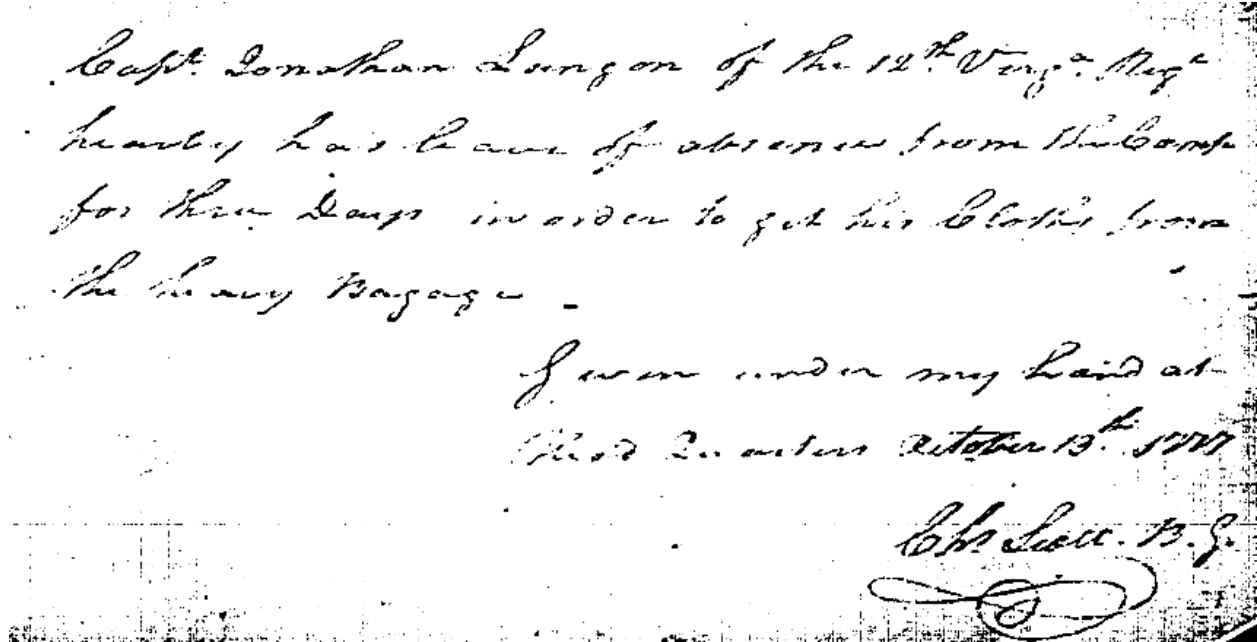 Capt. Jonathan Langdon of the 12th. Virga. Regt
hearby has leave of absence from the Camp
for three Days in order to get his Cloths from
the heavy Bagage -
Given under my hand at
Head Quarters October 13th. 1777
Chs Scott. B. G.